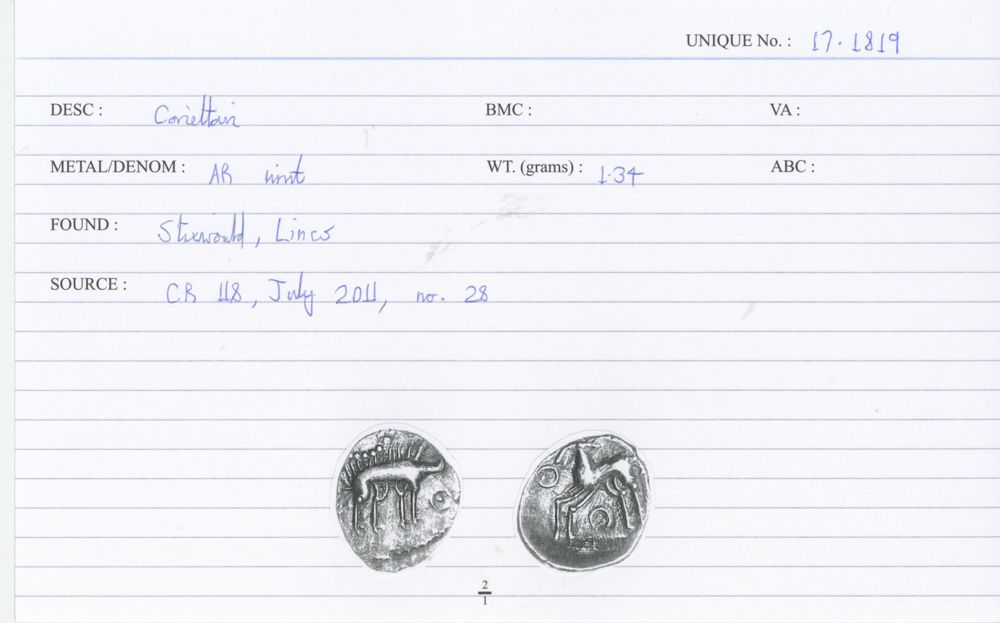 UNIQUE No. : 17.1819
DESC : Corieltavi BMC : VA :
METAL/DENOM : AR unit WT. (grams) : 1.34 ABC :
FOUND : Stixwould, Lincs
SOURCE : CR 118, July 2011, no. 28
2
1